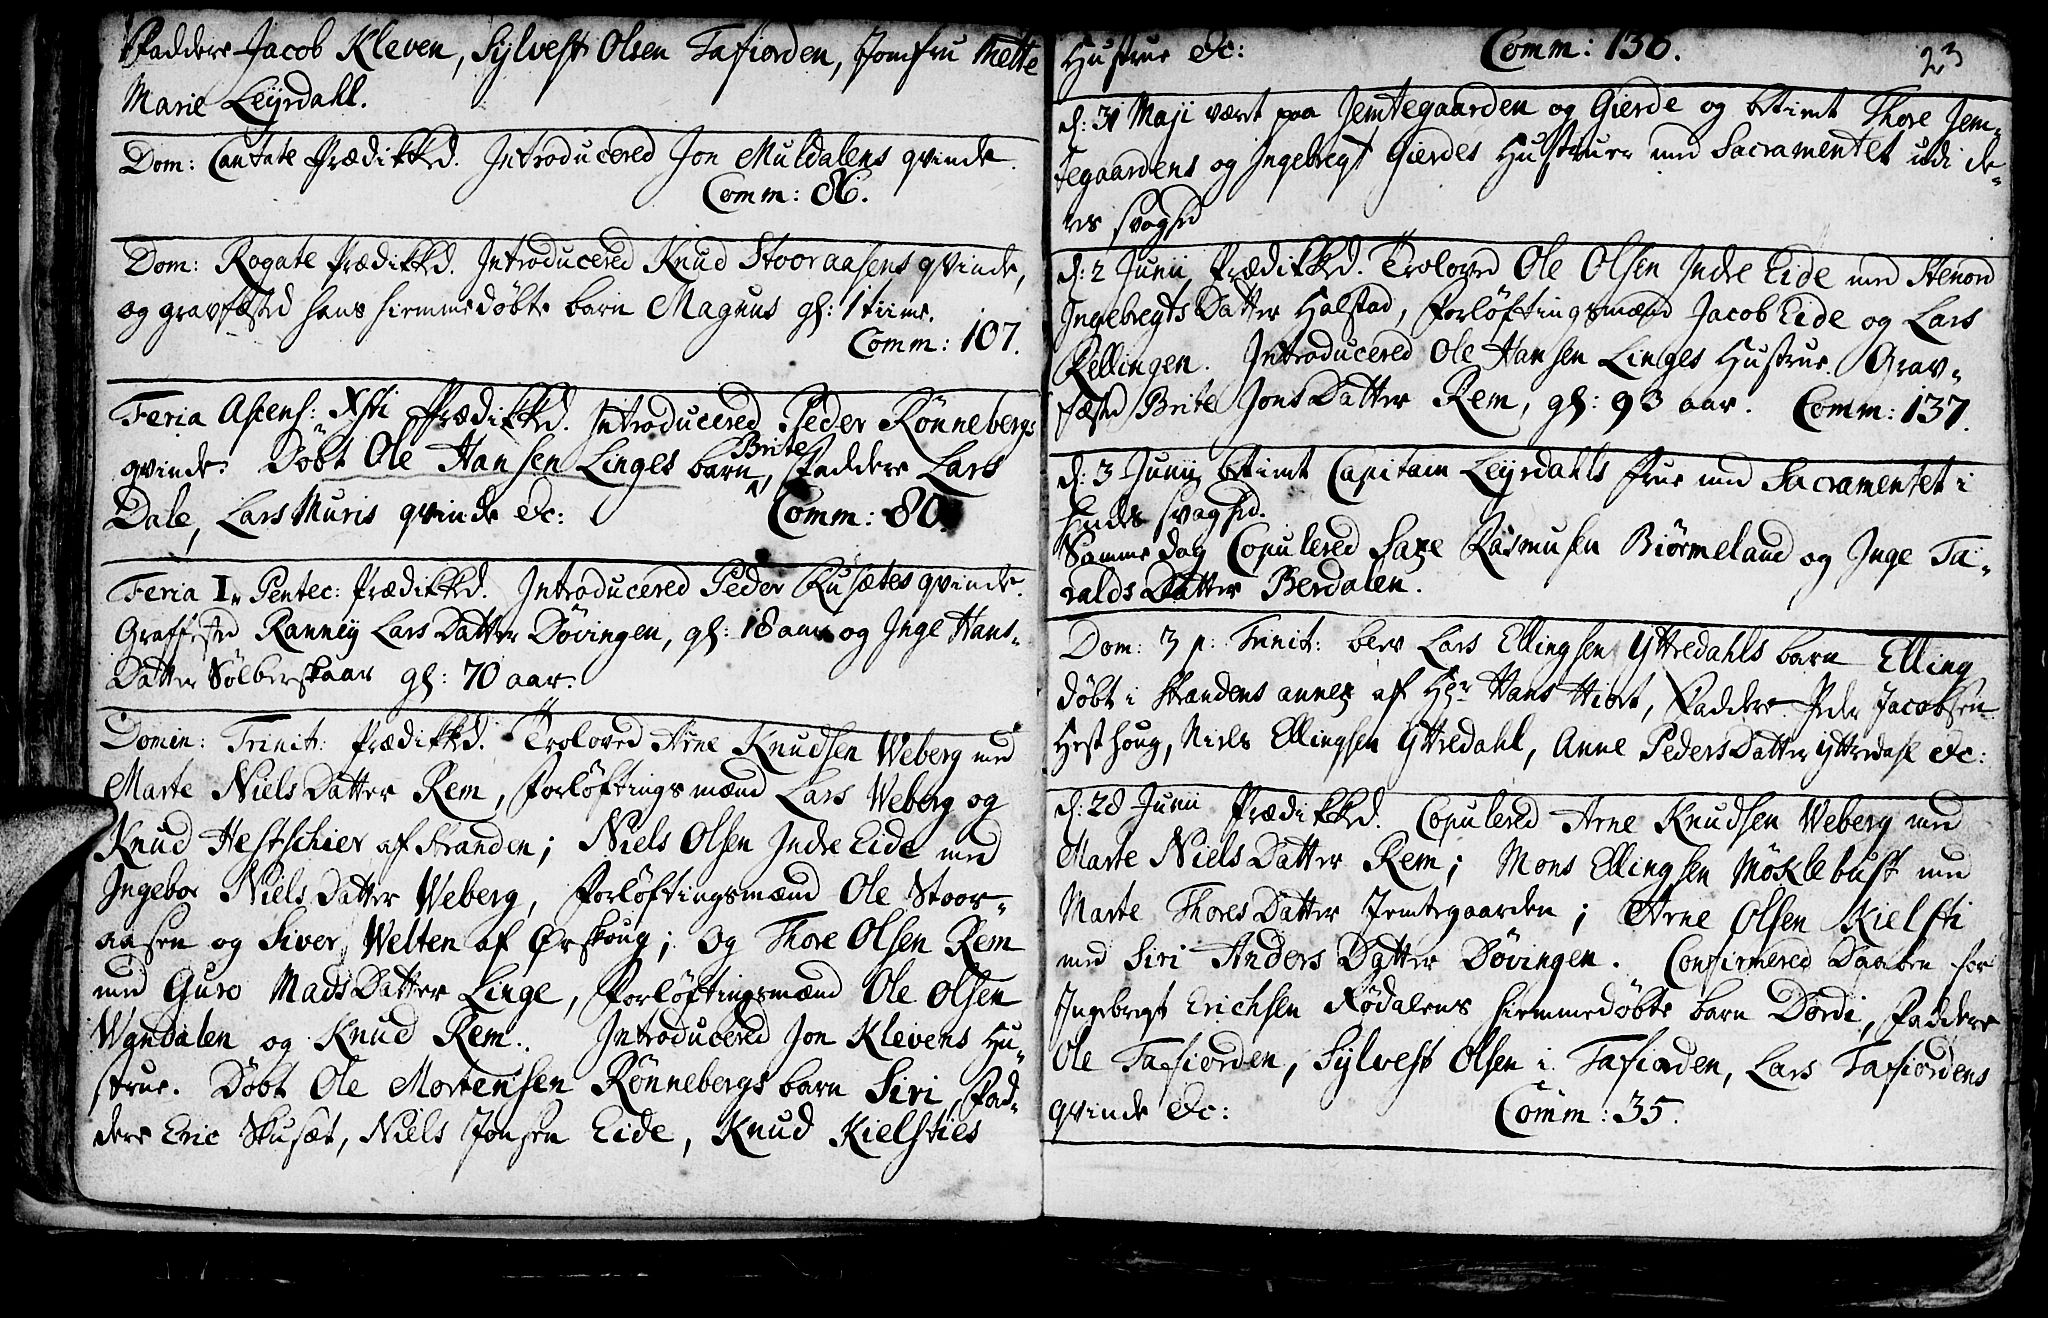 Faddere Jacob Kleven, Sylvest Olsen Tafiorden, Jomfru Mette
Marie Leyrdahl.
Dom: Cantate Prædikked. Introducered Jon Muldalens qvinde.
Comm: 86.
Dom: Rogate Prædikked. Introducered Knud Stooraasens qvinde,
og gravfæsted hans hiemmedøbte barn Magnus gl: 1 time.
Comm: 107.
Feria Ascens: Xsti Prædikked. Introducered Peder Rönnebergs
qvinde. Döbt Ole Hansen Linges barn Brite, Faddere Lars
Dale, Lars Muris qvinde &c:
Comm: 80.
Feria I. Pentec: Prædikked. Introducered Peder Rusætes qvinde.
Graffested Ranney Lars Datter Dövingen, gl: 18 aar og Inge Hans-
Datter Sölberskaar gl: 70 aar.
Domin: Trinit: Prædikked. Troloved Arne Knudsen Weberg med
Marte Niels Datter Rem, Forlöftingsmænd Lars Weberg og
Knud Hestschier af Stranden; Niels Olsen Indre Eide med
Ingebor Niels Datter Weberg, Forlöftingsmænd Ole Stoor-
aasen og Siver Welten af Ørskoug; og Thore Olsen Rem
med Guro Mads Datter Linge, Forlöftingsmænd Ole Olsen
Wandalen og Knud Rem. Introducered Jon Klevens Hu-
strue. Döbt Ole Mortensen Rönnebergs barn Siri, Fad-
dere Eric Skusæt, Niels Jonsen Eide, Knud Kielsties
Hustrue &c: Comm: 136.
23
d: 31 Maji været paa Jemtegaarden og Gierde og betient Thore Jem-
tegaardens og Ingebregt Gierdes Hustruer med Sacramentet udi de-
res svaghed
d: 2 Junii Prædikked. Troloved Ole Olsen Indre Eide med Stenord
Ingebregts Datter Halstad, Forlöftingsmænd Jacob Eide og Lars
Rellingen. Introducered Ole Hansen Linges Hustrue. Grav-
fæsted Brite Jons Datter Rem, gl: 93 aar. Comm: 137.
d: 3 Junii betient Capitain Leyrdahls frue med Sacramentet i
hendes svaghed.
Samme dag Copulered Saxe Rasmusen Biörmeland og Inge Ta-
ralds Datter Berdalen.
Dom: 3 p: Trinit: blev Lars Ellingsen Yttredahls barn Elling
döbt i Strandens annex af Hr Hans Hiort, Faddere Peder Jacobsen
Hesthoug, Niels Ellingsen Yttredahl, Anne Peders Datter Yttredahl &c:
d: 28 Junii Prædikked. Copulered Arne Knudsen Weberg med
Marte Niels Datter Rem; Mons Ellingsen Möklebust med
Marte Thores Datter Jemtegaarden; Arne Olsen Kielsti
med Siri Anders Datter Dövingen. Confirmered Daaben for
Ingebregt Erichsen Rödalens hiemmedøbte barn Dordi, Faddere
Ole Tafiorden, Sylvest Olsen i Tafiorden, Lars Tafiordens
qvinde &c: Comm: 35.